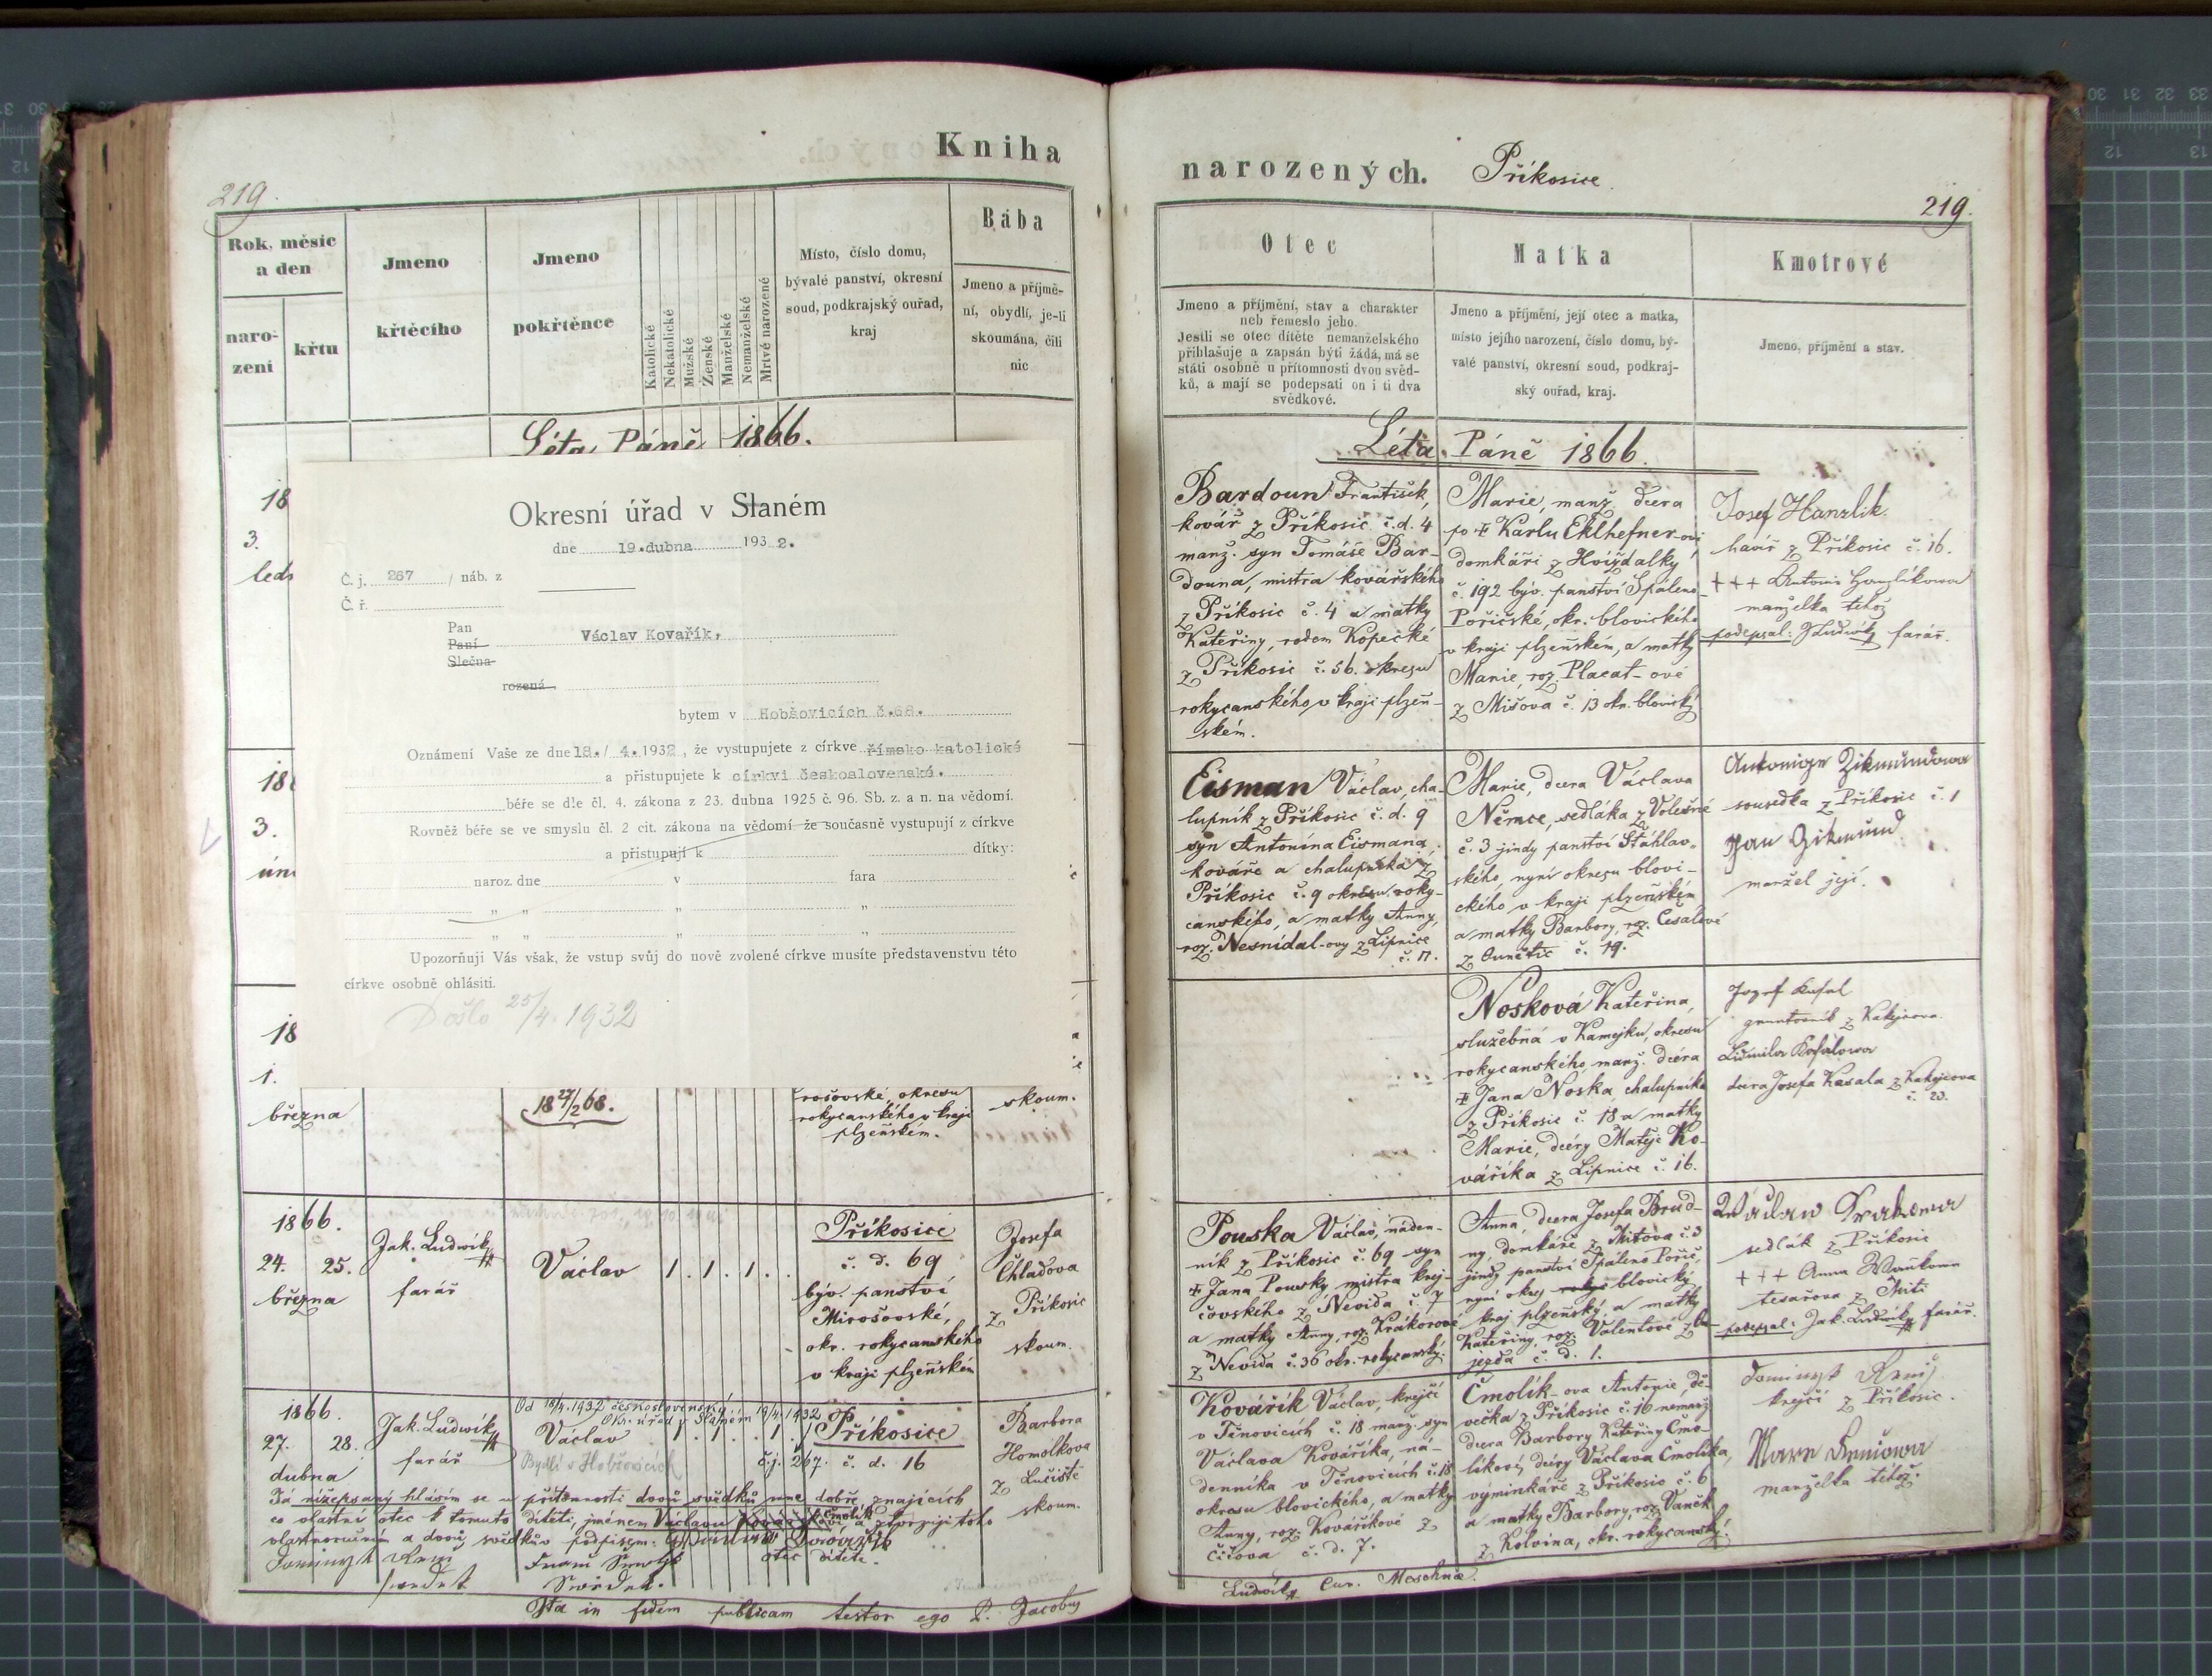 219.
Kniha
Rok, měsíc
a den
naro-
zení
křtu
Jmeno
křtěcího
Jmeno
pokřtěnce
Katolické
Nekatolické
Mužské
Ženské
Manželské
Nemanželské
Mrtvé narozené
Místo, číslo domu,
bývalé panství, okresní
soud, podkrajský ouřad,
kraj
Bába
Jmeno a příjmě-
ní, obydlí, je-li
skoumána, čili
nic
Léta Páně 1866.
18
3.
Okresní úřad v Slaném
dne 19.dubna 1932.
Č. j. 267 / náb. z
Č. ř.
Pan
Paní
Slečna
Václav Kovařík,
rozená
bytem v Hobšovicích č.68.
Oznámení Vaše ze dne 18./ 4. 1932, že vystupujete z církve římsko katolické
a přistupujete k církvi československé.
béře se dle čl. 4. zákona z 23. dubna 1925 č. 96. Sb. z. a n. na vědomí.
Rovněž béře se ve smyslu čl. 2 cit. zákona na vědomí že současně vystupují z církve
a přistupují k dítky:
naroz. dne v fara
„ „ „ „
„ „ „ „
Upozorňuji Vás však, že vstup svůj do nově zvolené církve musíte představenstvu této
církve osobně ohlásiti.
Došlo 25/4. 1932
18
3.
18
1.
března
18 27/2 68.
rošovské, okresu
rokycanského v kraji
plzeňském.
skoum.
1866.
24. 25.
března
Jak. Ludwík
farář
Václav
1. 1. 1. .
Příkosice
č. d. 69
býv. panství
Mirošovské,
okr. rokycanského
v kraji plzeňském
Josefa
Chladova
z Příkosic
skoum.
1866.
27. 28.
dubna
Jak. Ludwík
farář
Od 18/4.1932 československý
Okr. úřad v Slaném 19/4.1932
č.j. 267.
Václav
Bydlí v Hobšovicích
1. 1. . 1. 1
Příkosice
č. d. 16
Barbora
Homolkova
z Lučiště
skoum.
Já nížepsaný hlásím se u přítomnosti dvou svědků mne dobře znajících
co vlastní otec k tomuto dítěti, jménem Václavu
Čmolík
vlastnoručním a dvou svědkův podpisem:
otec dítěte.
svedek
Svědek.
Ita in fidem publicam testor ego P. Jacobus
narozených. Příkosice.
219.
Otec
Jmeno a příjmění, stav a charakter
neb řemeslo jeho.
Jestli se otec dítěte nemanželského
přihlašuje a zapsán býti žádá, má se
státi osobně u přítomnosti dvou svěd-
ků, a mají se podepsati on i ti dva
svědkové.
Matka
Jmeno a příjmění, její otec a matka,
místo jejího narození, číslo domu, bý-
valé panství, okresní soud, podkraj-
ský ouřad, kraj.
Kmotrové
Jmeno, příjmění a stav.
Léta Páně 1866.
Bardoun František,
kovář z Příkosic č.d. 4
manž. syn Tomáše Bar-
douna, mistra kovářského
z Příkosic č. 4 a matky
Kateřiny, rodem Kopecké
z Příkosic č. 56. okresu
rokycanského v kraji plzeň-
ském.
Marie, manž. dcera
po ‡ Karlu Eklhefner-ovi,
domkáři z Hvížďalky
č. 192 býv. panství Spáleno-
Poříčské, okr. blovického
v kraji plzeňském, a matky
Marie, roz. Placat-ové
z Mišova č. 13 okr. blovický
Josef Hanzlik
havíř z Příkosic č. 16.
+++ Antonie Hanzlíkowa
manželka téhož
podepsal: J Ludwík farář.
Eisman Václav, cha-
lupník z Příkosic č. d. 9
syn Antonína Eismana,
kováře a chalupníka z
Příkosic č. 9 okresu roky-
canského, a matky Anny,
roz. Nesnídal-ovy z Lipnice
č. 17.
Marie, dcera Václava
Němce, sedláka z Volešné
č. 3 jindy panství Šťáhlav-
ského, nyní okresu blovi-
ckého v kraji plzeňském
a matky Barbory, roz. Cesalové
z Čunětic č. 19.
Antonige Zikmundowa
sousedka z Příkosic č. 1
Jan Zikmund
manžel její.
Nosková Kateřina,
služebná v Kamejku, okresu
rokycanského, manž. dcéra
‡ Jana Noska, chalupníka
z Příkosic č. 18 a matky
Marie, dcéry Matěje Ko-
váříka z Lipnice č. 16.
Jozef Kasal
gruntovník z Kakejcova.
Lidmila Kasalowa
dcera Josefa Kasala z Kakejcova
č. 23.
Pouska Václav, náden-
ník z Příkosic č. 69 syn
‡ Jana Pousky, mistra krej-
čovského z Nevida č. 7
a matky Anny, roz. Krákorové
z Nevida č. 36 okr. rokycanský.
Anna, dcera Josefa Brud-
ny, domkáře z Mitova č. 3
jindy panství Spáleno Poříč,
nyní okres blovický
kraj plzeňský, a matky
Kateřiny, roz. Valentové z Ú-
jezda č. d. 1.
sedlák z Příkosic
+++ Anna
tesařova z Mití
podepsal: Jak. Ludwík farář.
Kovářík Václav, krejčí
v Těnovicích č. 18 manž. syn
Václava Kováříka, ná-
denníka v Těnovicích č. 18
okresu blovického, a matky
Anny, roz. Kováříkové z
Čížova č. d. 7.
Čmolík-ova Antonie, dě-
večka z Příkosic č. 16 nemanž
dcera Barbory Kateřiny Čmo-
líkové, dcéry Václava Čmolíka,
výminkáře z Příkosic č. 6
a matky Barbory, roz. Vaněk
z Kolvína, okr. rokycanský.
krejčí z Příkosic.
manželka téhož.
Ludwík Cur. Meschnae.